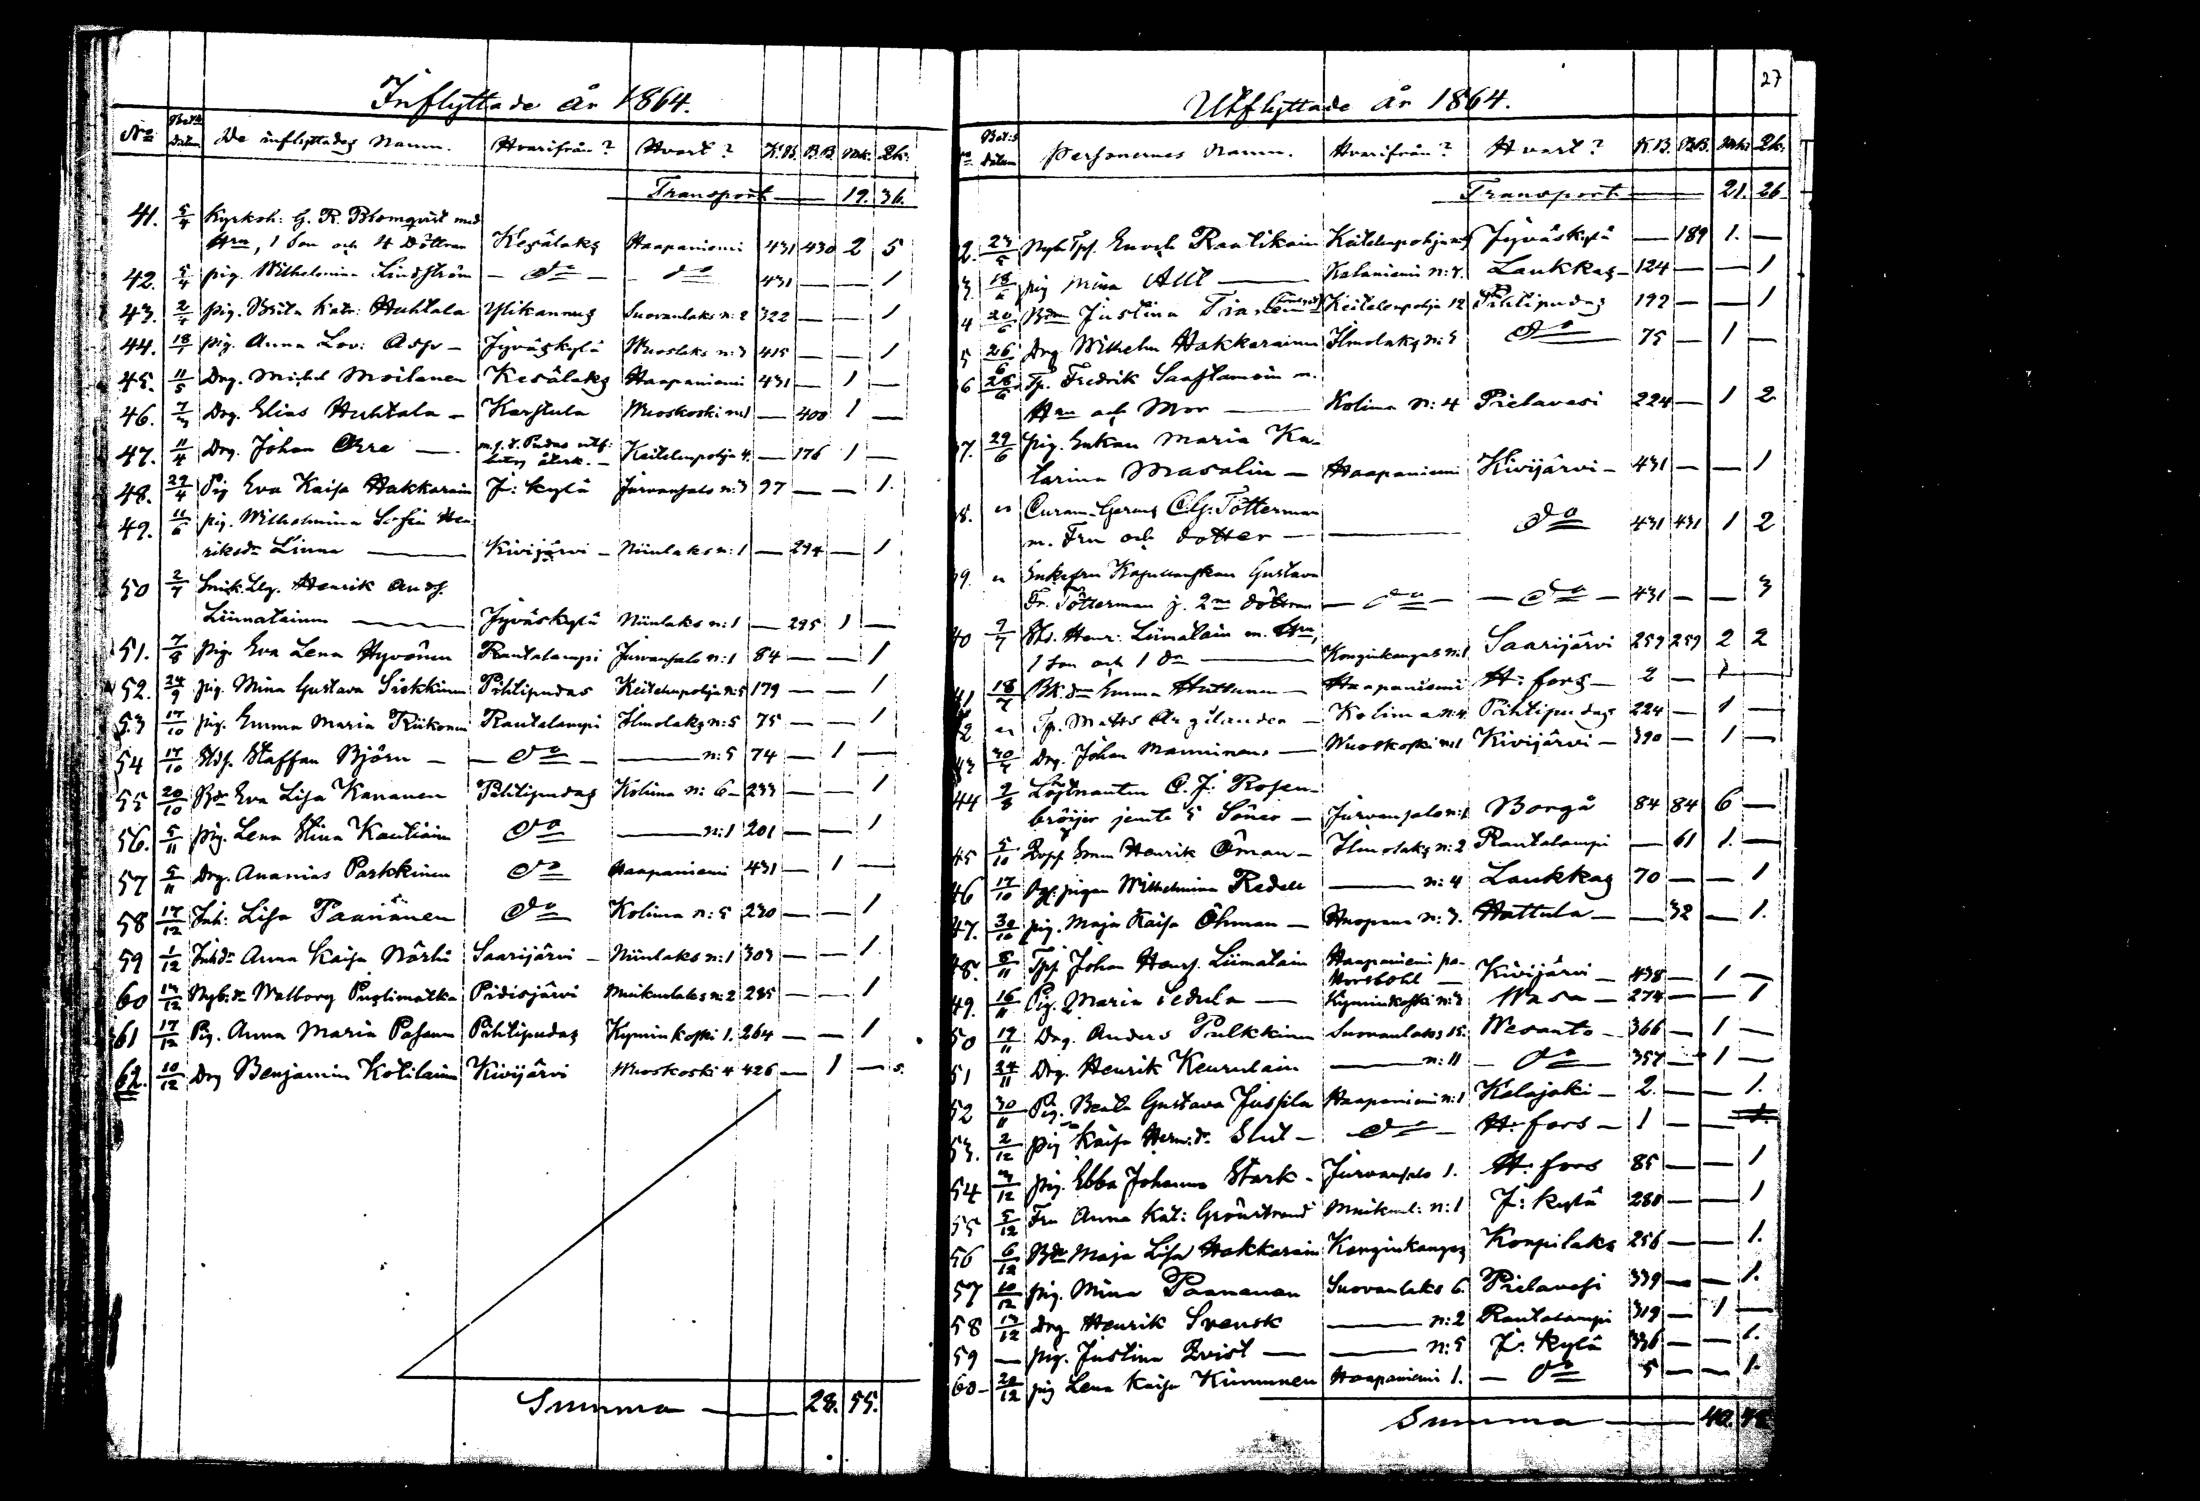 Inflyttade år 1864.
No Bet:s Datum De inflyttades Namn. Hvarifrån? Hvart? K.B. B.B. Mk. Qk.
Transport — 19. 36.
41. 5/4 Kyrkoh: G. R. Blomqvist med
Hru, 1 Son och 4 Döttrar Kesälaks Haapaniemi 431 430 2 5
42. 5/4 pig. Wilhelmina Lindström — do — — do 431 — — 1
43. 2/4 pig. Brita Katr: Huhtala Ylikannus Suovanlaks n: 2 322 — — 1
44. pig. Anna Lov: Asp — Jyväskylä n: 3 415 — — 1
45. 11/5 Drg. Michel Moilanen Kesälaks Haapaniemi 431 — 1 —
46. Drg. Elias Huhtala — Karstula Wuoskoski n:1 — 400 1 —
47. 11/4 Drg. Johan Orre — Keitelenpohja 4. — 176 1 —
48. 29/4 Pig Eva Kaisa Hakkarain J: kylä Jurvansalo n:3 97 — — 1.
49. 11/6 pig. Wilhelmina Sofia Hen
riksdr Linna — Kivijärvi — Niinilaks n: 1 — 294 — 1.
50 2/7 Henrik Ands.
Liimatainen — Jyväskylä Niinilaks n: 1 — 295 1 —
51. 7/8 pig. Eva Lena Hyvönen Rautalampi Jurvansalo n: 1 84 — — 1
52. 24/9 pig. Mina Gustava Siekkinen Pihtipudas Keitelenpohja n:5 179 — — 1
53 17/10 pig. Emma Maria Riikonen Rautalampi Ilmolaks n: 5 75 — — 1
54 17/10 Staffan Björn — — do — — n: 5 74 — 1 —
55 20/10 Bdr Eva Lisa Kananen Pihtipudas Kolima n: 6 — 233 — — 1
56. 5/11 pig. Lena Stina Kautiain do — n: 1 201 — — 1
57 5/11 Drg. Ananias Parkkinen do Haapaniemi 431 — 1 —
58 17/12 Inh: Lisa Paananen do Kolima n: 5 230 — — 1
59 1/12 Inhdr Anna Kaisa Närhi Saarijärvi — Niinilaks n: 1 303 — — 1.
60 13/12 Nyb:dr Walborg Puolimatka Pidisjärvi Muikunlaks n: 2 285 — — 1
61 17/12 Pig. Anna Maria Pasanen Pihtipudas Kyminkoski 1. 264 — — 1
62. 10/12 Drg Benjamin Kotilainen Kivijärvi Wuoskoski 4 426 — 1 —
Summa — 28. 55.
27
Utflyttade år 1864.
Bet:s Datum Personernes Namn. Hvarifrån? Hvart? K.B. B.B. Mk. Qk.
Transport — 21. 26
2. 23/5 Enoch Rautikain Keitelenpohja Jyväskylä — 189 1. —
3. 18/6 pig Mina Ahl — Kalaniemi n: 7. Laukkas — 124 — — 1
4 20/6 Bdr Justina Keitelenpohja 12 Pihtipudas 192 — — 1
5 26/6 Drg Wilhelm Hakkarainen Ilmolaks n: 5 do 75 — 1 —
6 26/6 Tp. Fredrik Saastamoin m.
Hru och Mor — Kolima n: 4 Pielavesi 224 — 1 2
37. 29/6 pig. Enkan Maria Ka-
tarina Masalin — Haapaniemi Kivijärvi — 431 — — 1
38. " C.G. Tötterman
m. Fru och dotter — — do 431 431 1 2
39. " Enkefru Gustava
Fr. Tötterman j. 2ne döttrar — do — — do — 431 — — 3
40 7/7 Henr: Liimatain m. Hru,
1 Son och 1 dr — Konginkangas n:1 Saarijärvi 259 259 2 2
41 18/7 Emma Huttunen — Haapaniemi H: fors — 2 —
42 " Tp. Matts Argillander — Kolima n:4 Pihtipudas 224 — 1 —
43 30/7 Drg. Johan Manninen — Wuoskoski n:1 Kivijärvi — 390 — 1 —
44 2/8 Löjtnanten C. J. Rosen-
bröijer jemte 5 Söner — Jurvansalo n:1 Borgå 84 84 6 —
45 5/10 Henrik Öman — Ilmolaks n: 2 Rautalampi — 61 1. —
46 17/10 pigan Wilhelmina Redell — n: 4 Laukkas 70 — — 1
47. 30/10 pig. Maja Kaisa Öhman — Huopana n: 3. Hattula — — 32 — 1.
48. 8/11 Johan Hens. Liimatain Haapaniemi pa-
Norrbohl — Kivijärvi — 438 — 1 —
49. 16/11 Pig. Maria Cedula — Kyminkoski n:3 Wasa — 274 — — 1
50 19/11 Drg. Anders Pulkkinen Suovanlaks 15. Wesanto — 366 — 1 —
51 24/11 Drg. Henrik Keurulain — n: 11 — do 357 — 1 —
52 30/11 Pig. Beata Gustava Jussila Haapaniemi n:1 Kalajoki — 2. — — 1.
53. 2/12 pig Kaisa Herm:dr Slut — — do — H: fors — 1 — —
54 3/12 pig. Ebba Johanna Stark — Jurvansalo 1. H: fors 85 — — 1
55 5/12 Fru Anna Kat: Grönstrand Muikunl: n: 1 J: kylä 280 — — 1
56 6/12 Bdr Maja Lisa Hakkarain Konginkangas Korpilaks 256 — — 1.
57 10/12 pig. Mina Paananen Suovanlaks 6. Pielavesi 339 — — 1.
58 13/12 Drg Henrik Svensk — n: 2 Rautalampi 319 — 1 —
59 — pig. Justina Qvist — — n: 5 J: kylä 336 — — 1.
60 — 20/12 pig Lena Kaisa Kinnunen Haapaniemi 1. — do 5 — — 1.
Summa — 40. 48